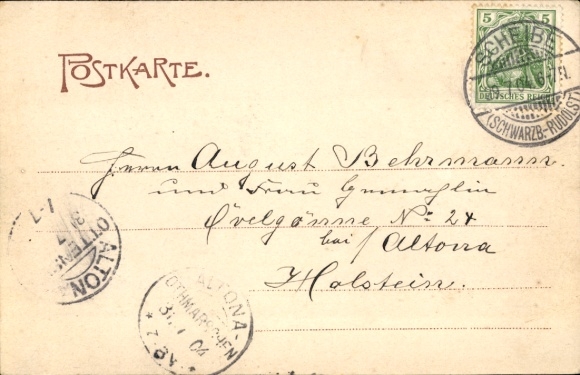 POSTKARTE.
5 5
DEUTSCHES REICH
SCHEIBE
(SCHWARZB-RUDOLST)
Herrn August Behrmann
und Frau Gemahlin
Övelgönne No 24
bei Altona
Holstein.
ALTONA
OTTEN
1-7
ALTONA-
OTHMARSCHEN
04